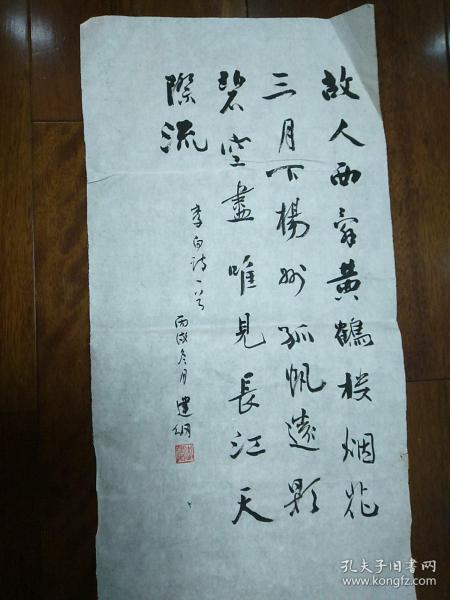 故人西辞黄鹤楼烟花
三月下楊州孤帆遠影
碧空盡唯見長江天
際流
李白詩一首
丙戌冬月 建綱
孔夫子旧书网
www.kongfz.com